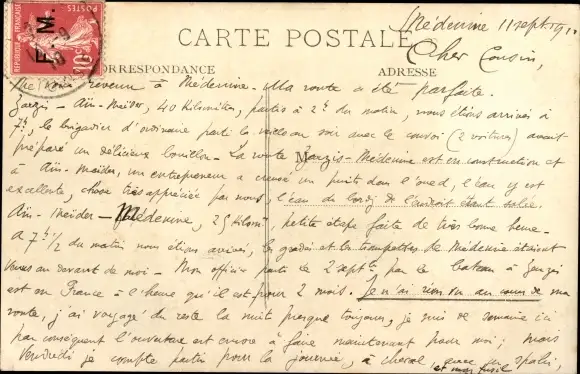 Médenine 11 sept. 191
CARTE POSTALE
Cher Cousin,
CORRESPONDANCE
ADRESSE
RÉPUBLIQUE FRANÇAISE
POSTES
F. M.
10
Me revenu à Médenine. Ma route a été parfaite.
Zarzis - Aïn-Maïder, 40 kilomètres, partis à 2h du matin, nous étions arrivés à
7h, le brigadier d'ordinaire parti la veille au soir avec le convoi (2 voitures) avait
préparé un délicieux bouillon. La route Zarzis-Médenine est en construction et
à Aïn-Maïder, un entrepreneur a creusé un puits dans l'oued, l'eau y est
excellente, chose très appréciée par nous, l'eau du bordj de l'endroit étant salée.
Aïn-Maïder - Médenine, 25 kilom, petite étape faite de très bonne heure
à 7h 1/2 du matin nous étions arrivés, les gradés et les trompettes de Médenine étaient
venus au devant de moi - Mon officier parti le 2 sept. par le bateau à Zarzis
est en France à l'heure qu'il est pour 2 mois. Je n'ai rien vu au cours de ma
route, j'ai voyagé du reste la nuit presque toujours, je suis de semaine ici
par conséquent l'ouverture est encore à faire maintenant pour moi; mais
Vendredi je compte partir pour la journée, à cheval, avec un spahi,
et mon fusil